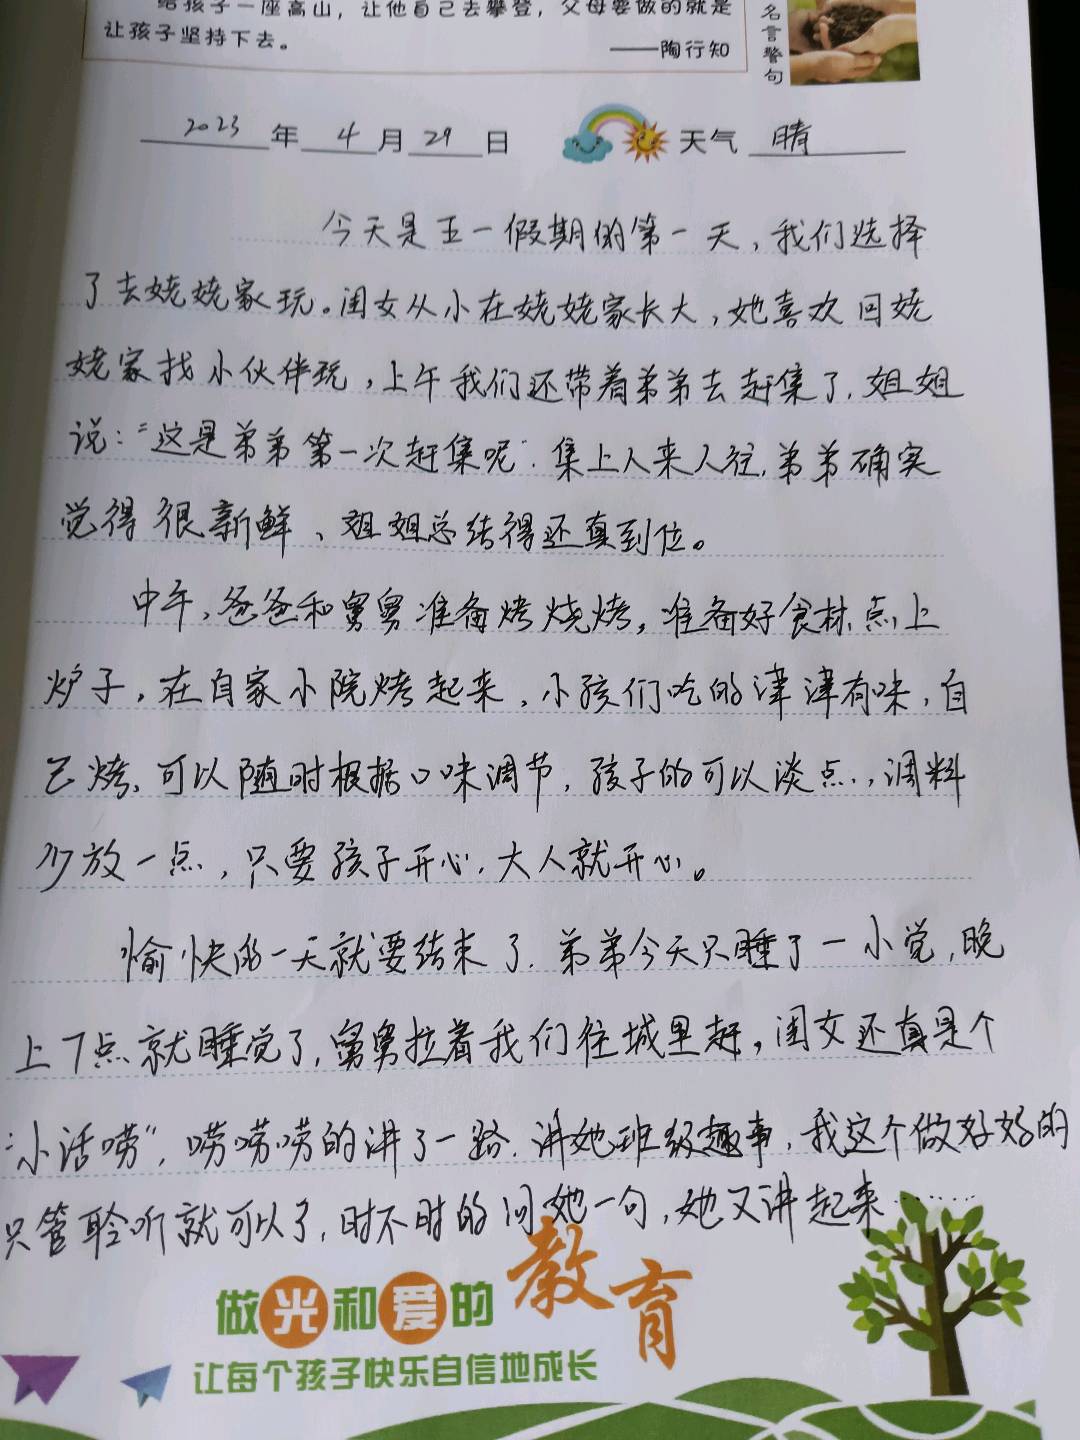 给孩子一座高山，让他自己去攀登，父母要做的就是
让孩子坚持下去。
——陶行知
名言警句
2023年4月29日 天气 晴
今天是五一假期的第一天，我们选择
了去姥姥家玩。闺女从小在姥姥家长大，她喜欢回姥
姥家找小伙伴玩，上午我们还带着弟弟去赶集了，姐姐
说：“这是弟弟第一次赶集呢”. 集上人来人往，弟弟确实
觉得很新鲜、姐姐总结得还真到位。
中午，爸爸和舅舅准备烤烧烤，准备好食材，点上
炉子，在自家小院烤起来，小孩们吃的津津有味，自
己烤，可以随时根据口味调节，孩子的可以淡点，调料
少放一点，只要孩子开心，大人就开心。
愉快的一天就要结束了. 弟弟今天只睡了一小觉，晚
上7点就睡觉了，舅舅拉着我们往城里赶，闺女还真是个
“小话唠”，唠唠唠的讲了一路. 讲她班级趣事，我这个做好好的
只管聆听就可以了，时不时的问她一句，她又讲起来……
做光和爱的教育
让每个孩子快乐自信地成长